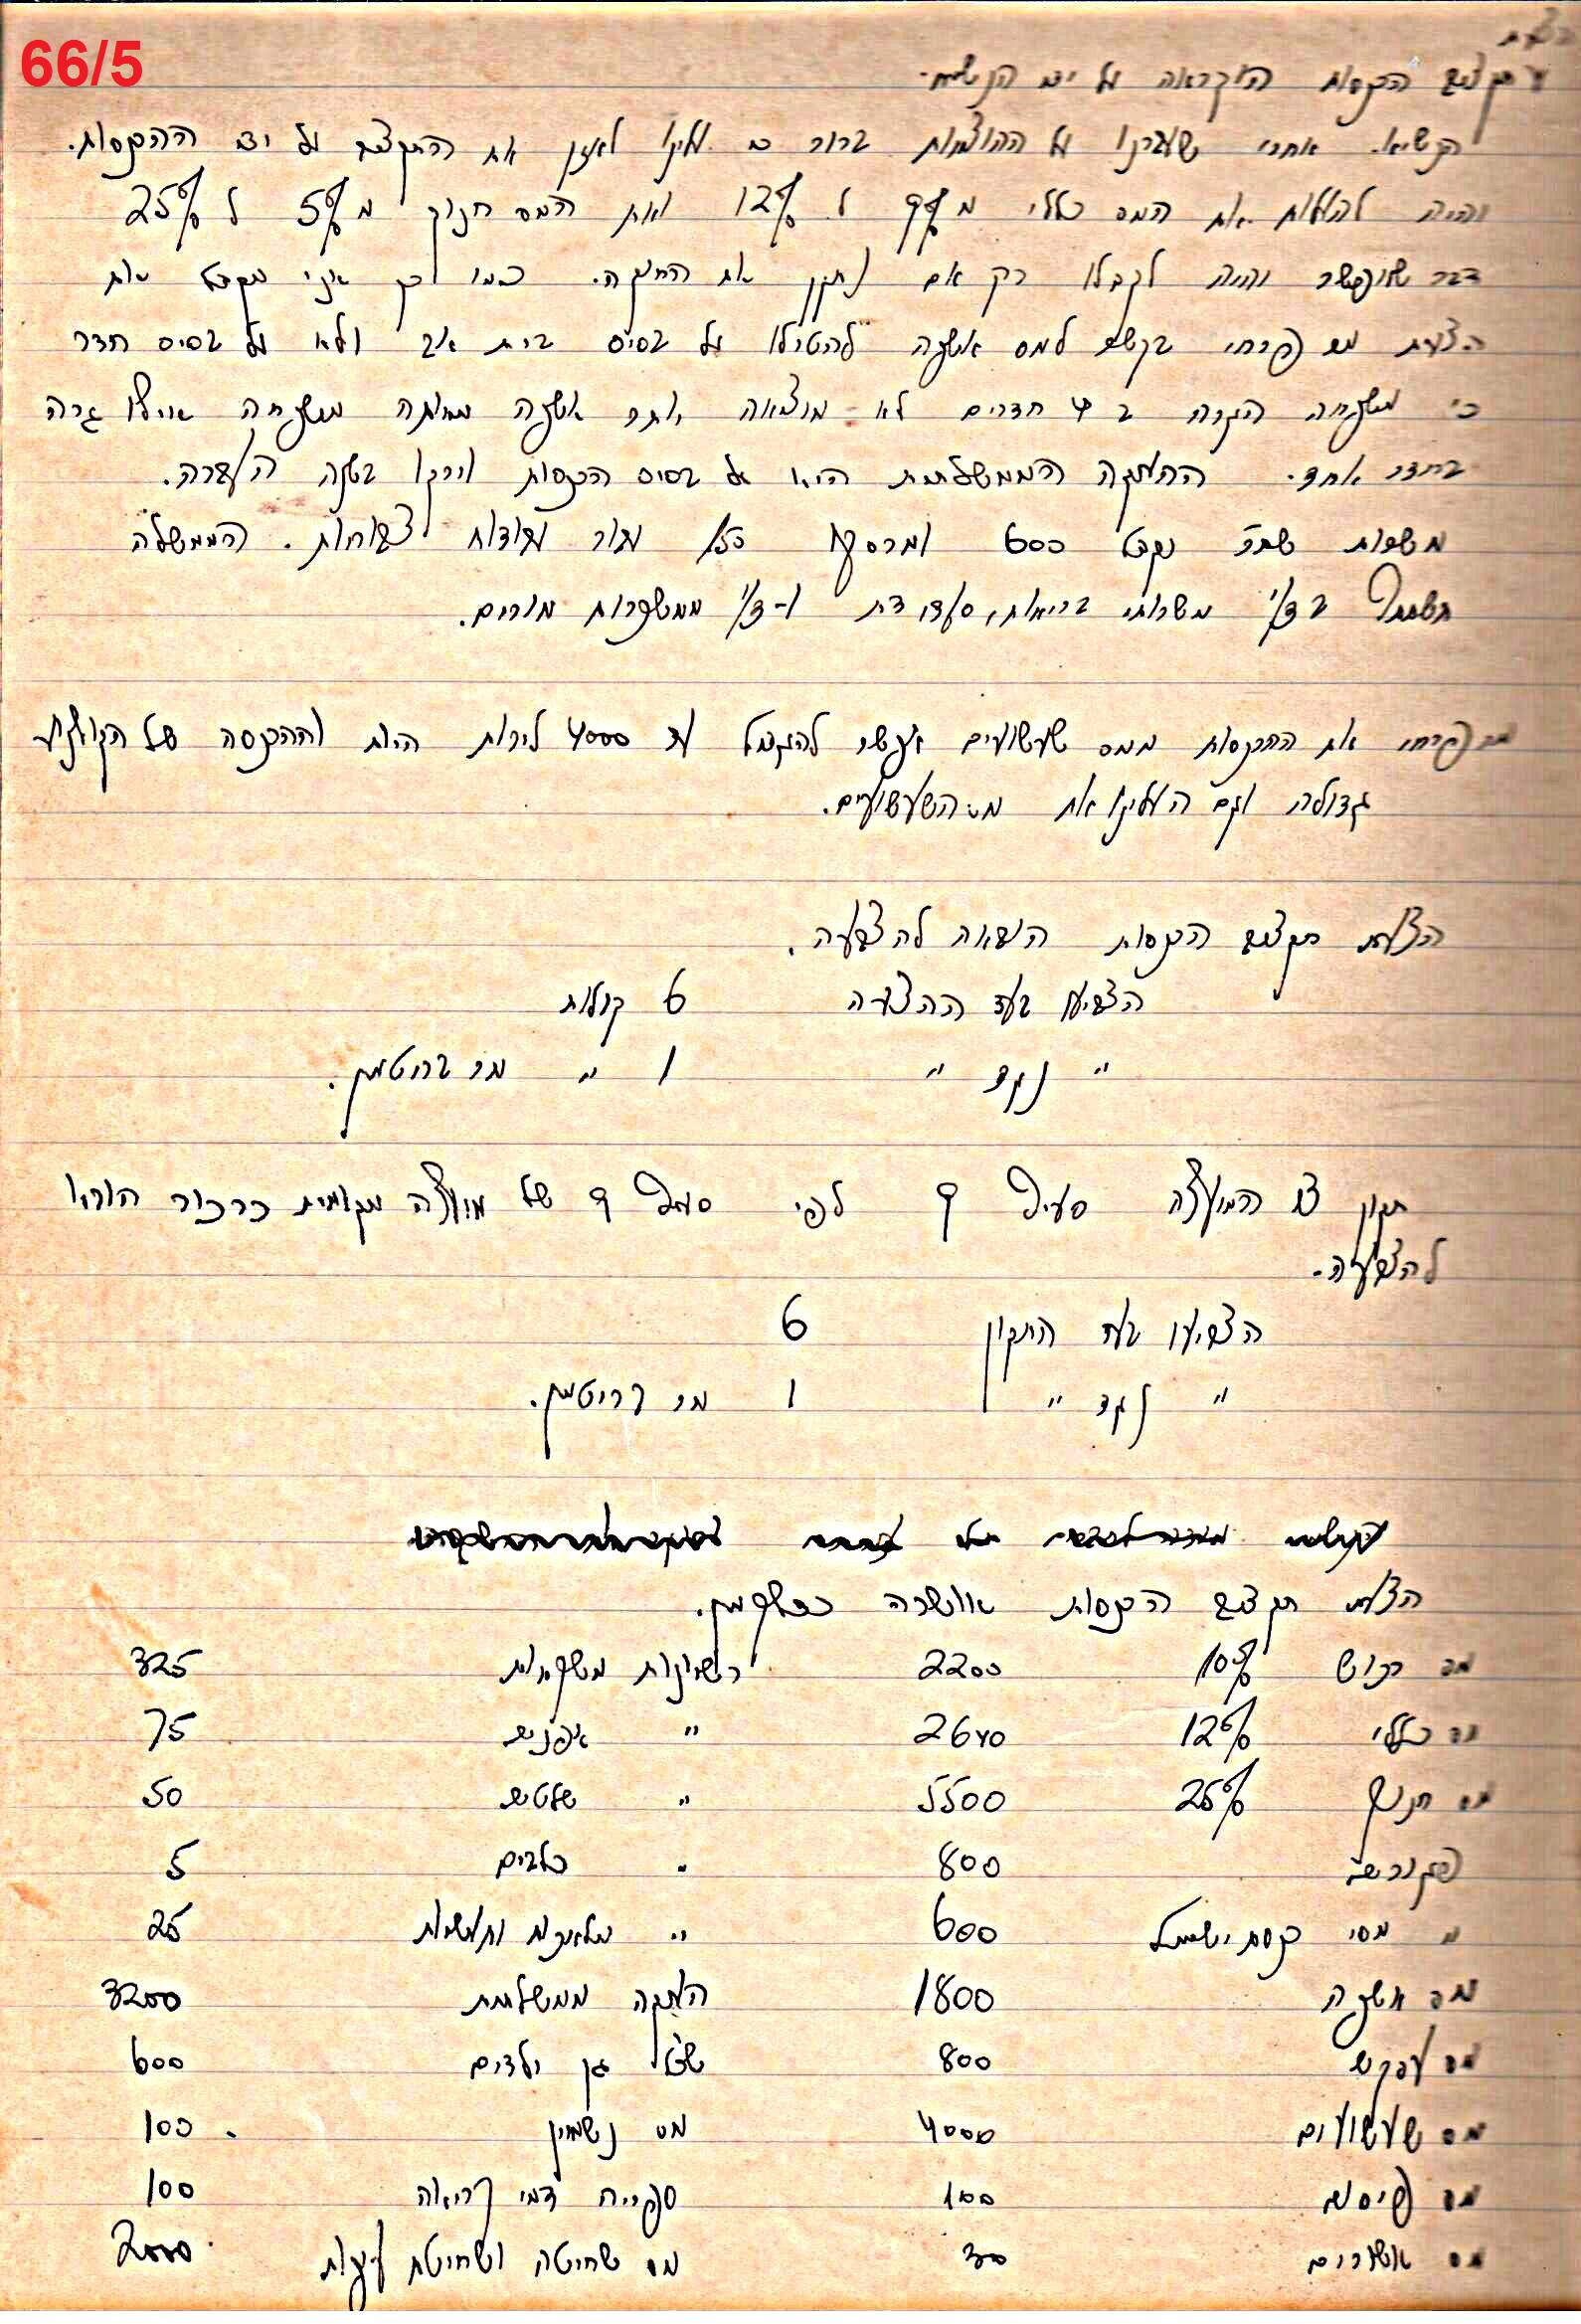 66/5
הצעת
תקציב הכנסות הוקראה על ידי הנשיא.
הנשיא. אחרי שעברנו על ההוצאות ברור כי עלינו לאזן את התקציב על ידי ההכנסות.
והיה להעלות את המס כללי מ 9% ל 12% ואת המס חנוך מ 5% ל 25%
דבר שאפשר יהיה לקבלו רק אם נתקן את החוקה. כמו כן אני מקבל את
הצעת מר פרחי בקשר למס אשפה להטילו על בסיס בית אב ולא על בסיס חדר
כי משפחה הגרה ב 4 חדרים לא מוציאה יותר אשפה מאותה משפחה אפילו גרה
בחדר אחד. החלוקה הממשלתית היא על בסיס הכנסות וירקו בשנה העברה.
נקבל 600 150 עבור הממשלה
תשתתף ב 1/3 משרותי בריאות, סעד, דת ו-1/3 ממשכורות מורים.
מר פרחי את ההכנסות ממס שעשועים אפשר להגדיל עד 4000 לירות היות וההכנסה של הקולנוע
גדולה וגם העלינו את מס השעשועים.
הצעת תקציב הכנסות הושאה להצבעה.
הצביעו בעד ההצעה 6 קולות
" נגד " 1 " מר ברוטמן.
תקון צו המועצה סעיף ף לפי סעיף ף של מועצה מקומית כרכור הורצו
להצבעה.
הצביעו בעד התקון 6
" נגד " 1 מר ברוטמן.
הצעת תקציב הכנסות אושרה כדלקמן.
מס רכוש 10% 2200 רשיונות משקאות 325
מס כללי 12% 2640 " אופנים 75
מס חנוך 25% 5500 " שלטים 50
800 " כלבים 5
מסי כנסת ישראל 600 " מלאכות ותעשיות 25
מס אשפה 1800 הענקה ממשלתית 3200
מס עסקים 800 שכ"ל גן ילדים 600
מס שעשועים 4000 מס נשואין 100
מס פיסול 100 ספריה דמי קריאה 100
מס אשורים 30 מס שחיטה ושחיטת עופות 2000